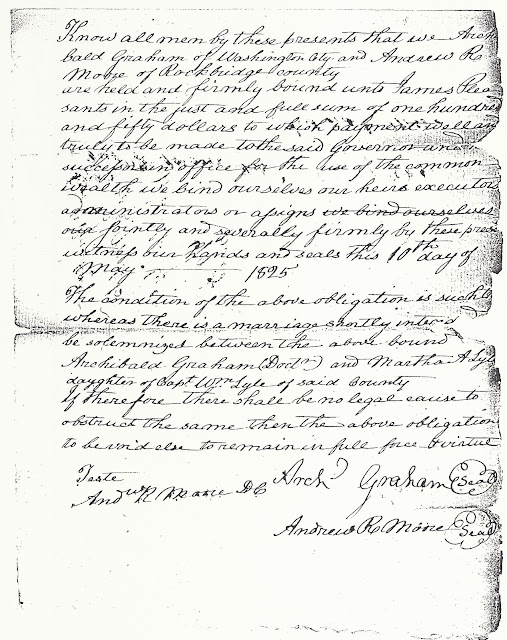 Know all men by these presents that we Arch
bald Graham of Washington City and Andrew R
Moore of Rockbridge county
are held and firmly bound unto James Plea
sants in the just and full sum of one hundred
and fifty dollars to which payment well an
truly to be made to the said Governor and
successors in office for the use of the common
wealth we bind ourselves our heirs executors
administrators or assigns we bind ourselves
jointly and severally firmly by these prese
witness our hands and seals this 10th day of
May 1825
The condition of the above obligation is such
whereas there is a marriage shortly inten'd
be solemnized between the above bound
Archibald Graham (Doctr) and Martha A Lyle
daughter of Capt Wm Lyle of said County
If therefore there shall be no legal cause to
obstruct the same then the above obligation
to be void else to remain in full force & virtue
Teste
Andw R Moore DC
Archd Graham Seal
Andrew R Moore Seal